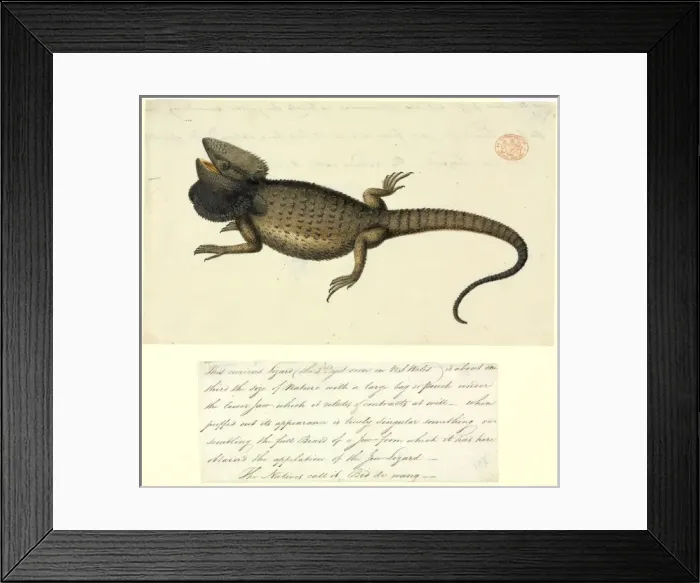 This curious Lizard (the 2d Dyet seen in Nd Wales) is about one
third the size of Nature with a large bag or pouch under
the lower Jaw which it inflates & contracts at will — when
puffed out its appearance is truly singular something re
sembling the full Beard of a Jew from which it has here
obtain'd the appelation of the Jew Lizard —
The Natives call it Bid de wang —